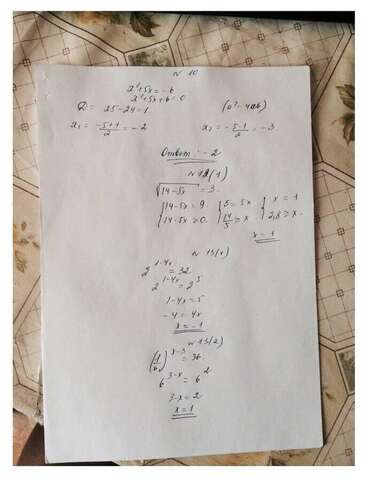 № 10
x²+5x=-6
x²+5x+6=0
D = 25-24=1 (b²-4ab)
x₁ = (-5+1)/2 = -2 x₂ = (-5-1)/2 = -3
Ответ: -2
№ 12(1)
√(14-5x) = 3
{14-5x=9 {5=5x {x=1
{14-5x≥0 {14/5≥x {2,8≥x
x=1
№ 13(1)
2^(1-4x) = 32
2^(1-4x) = 2^5
1-4x=5
-4=4x
x=-1
№ 13(2)
(1/6)^(x-3) = 36
6^(3-x) = 6^2
3-x=2
x=1